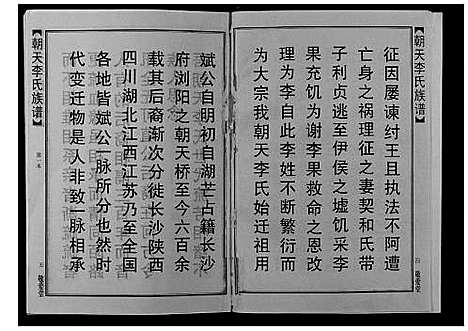 朝天李氏族谱
征因屡谏纣王且执法不阿遭
亡身之祸理征之妻契和氏带
子利贞逃至伊侯之墟饥采李
果充饥为谢李果救命之恩改
理为李自此李姓不断繁衍而
为大宗我朝天李氏始迁祖用
四
敬爱堂
斌公自明初自湖芒占籍长沙
府浏阳之朝天桥至今六百余
载其后裔渐次分徙长沙陕西
四川湖北江西江苏乃至全国
各地皆斌公一脉所分也然时
代变迁物是人非致一脉相承
朝天李氏族谱
五
敬爱堂